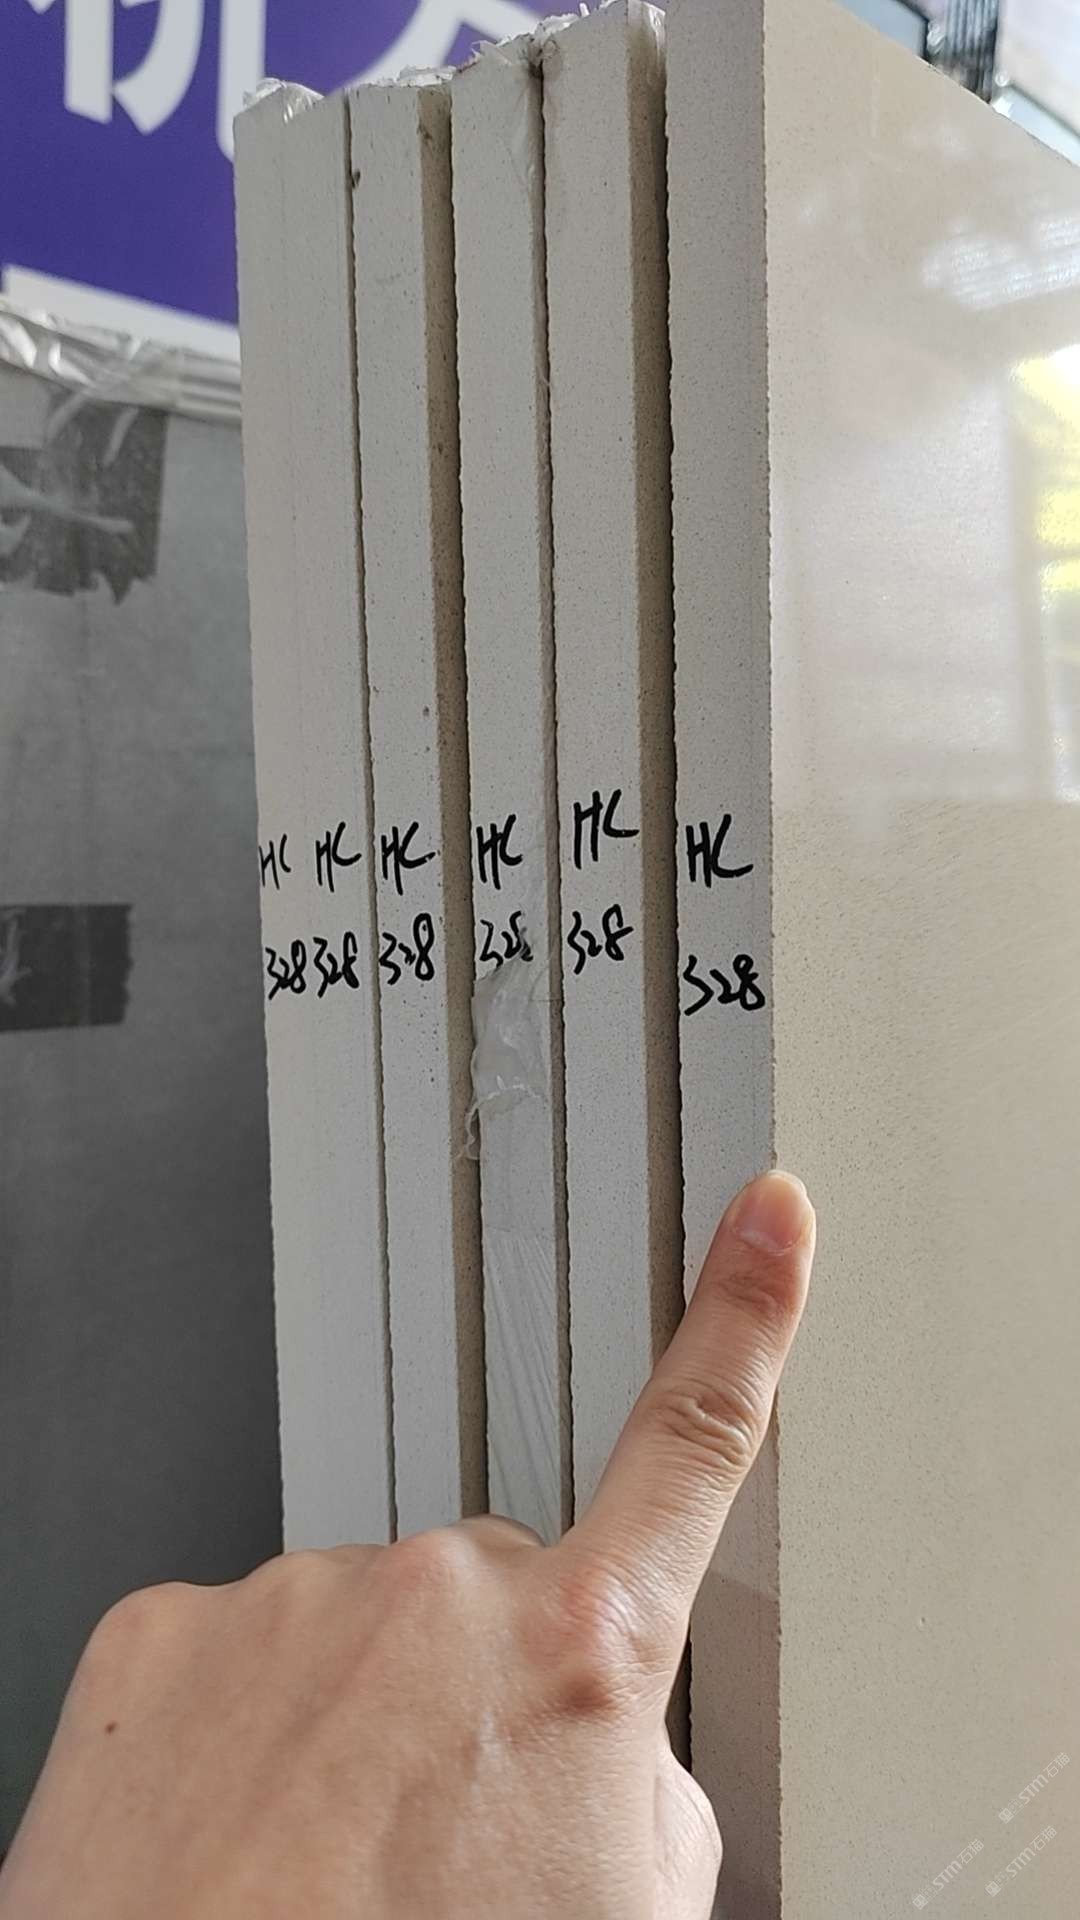 HC HC HC HC HC HC
328 328 328 328 328 328
STM石猫
STM石猫
STM石猫